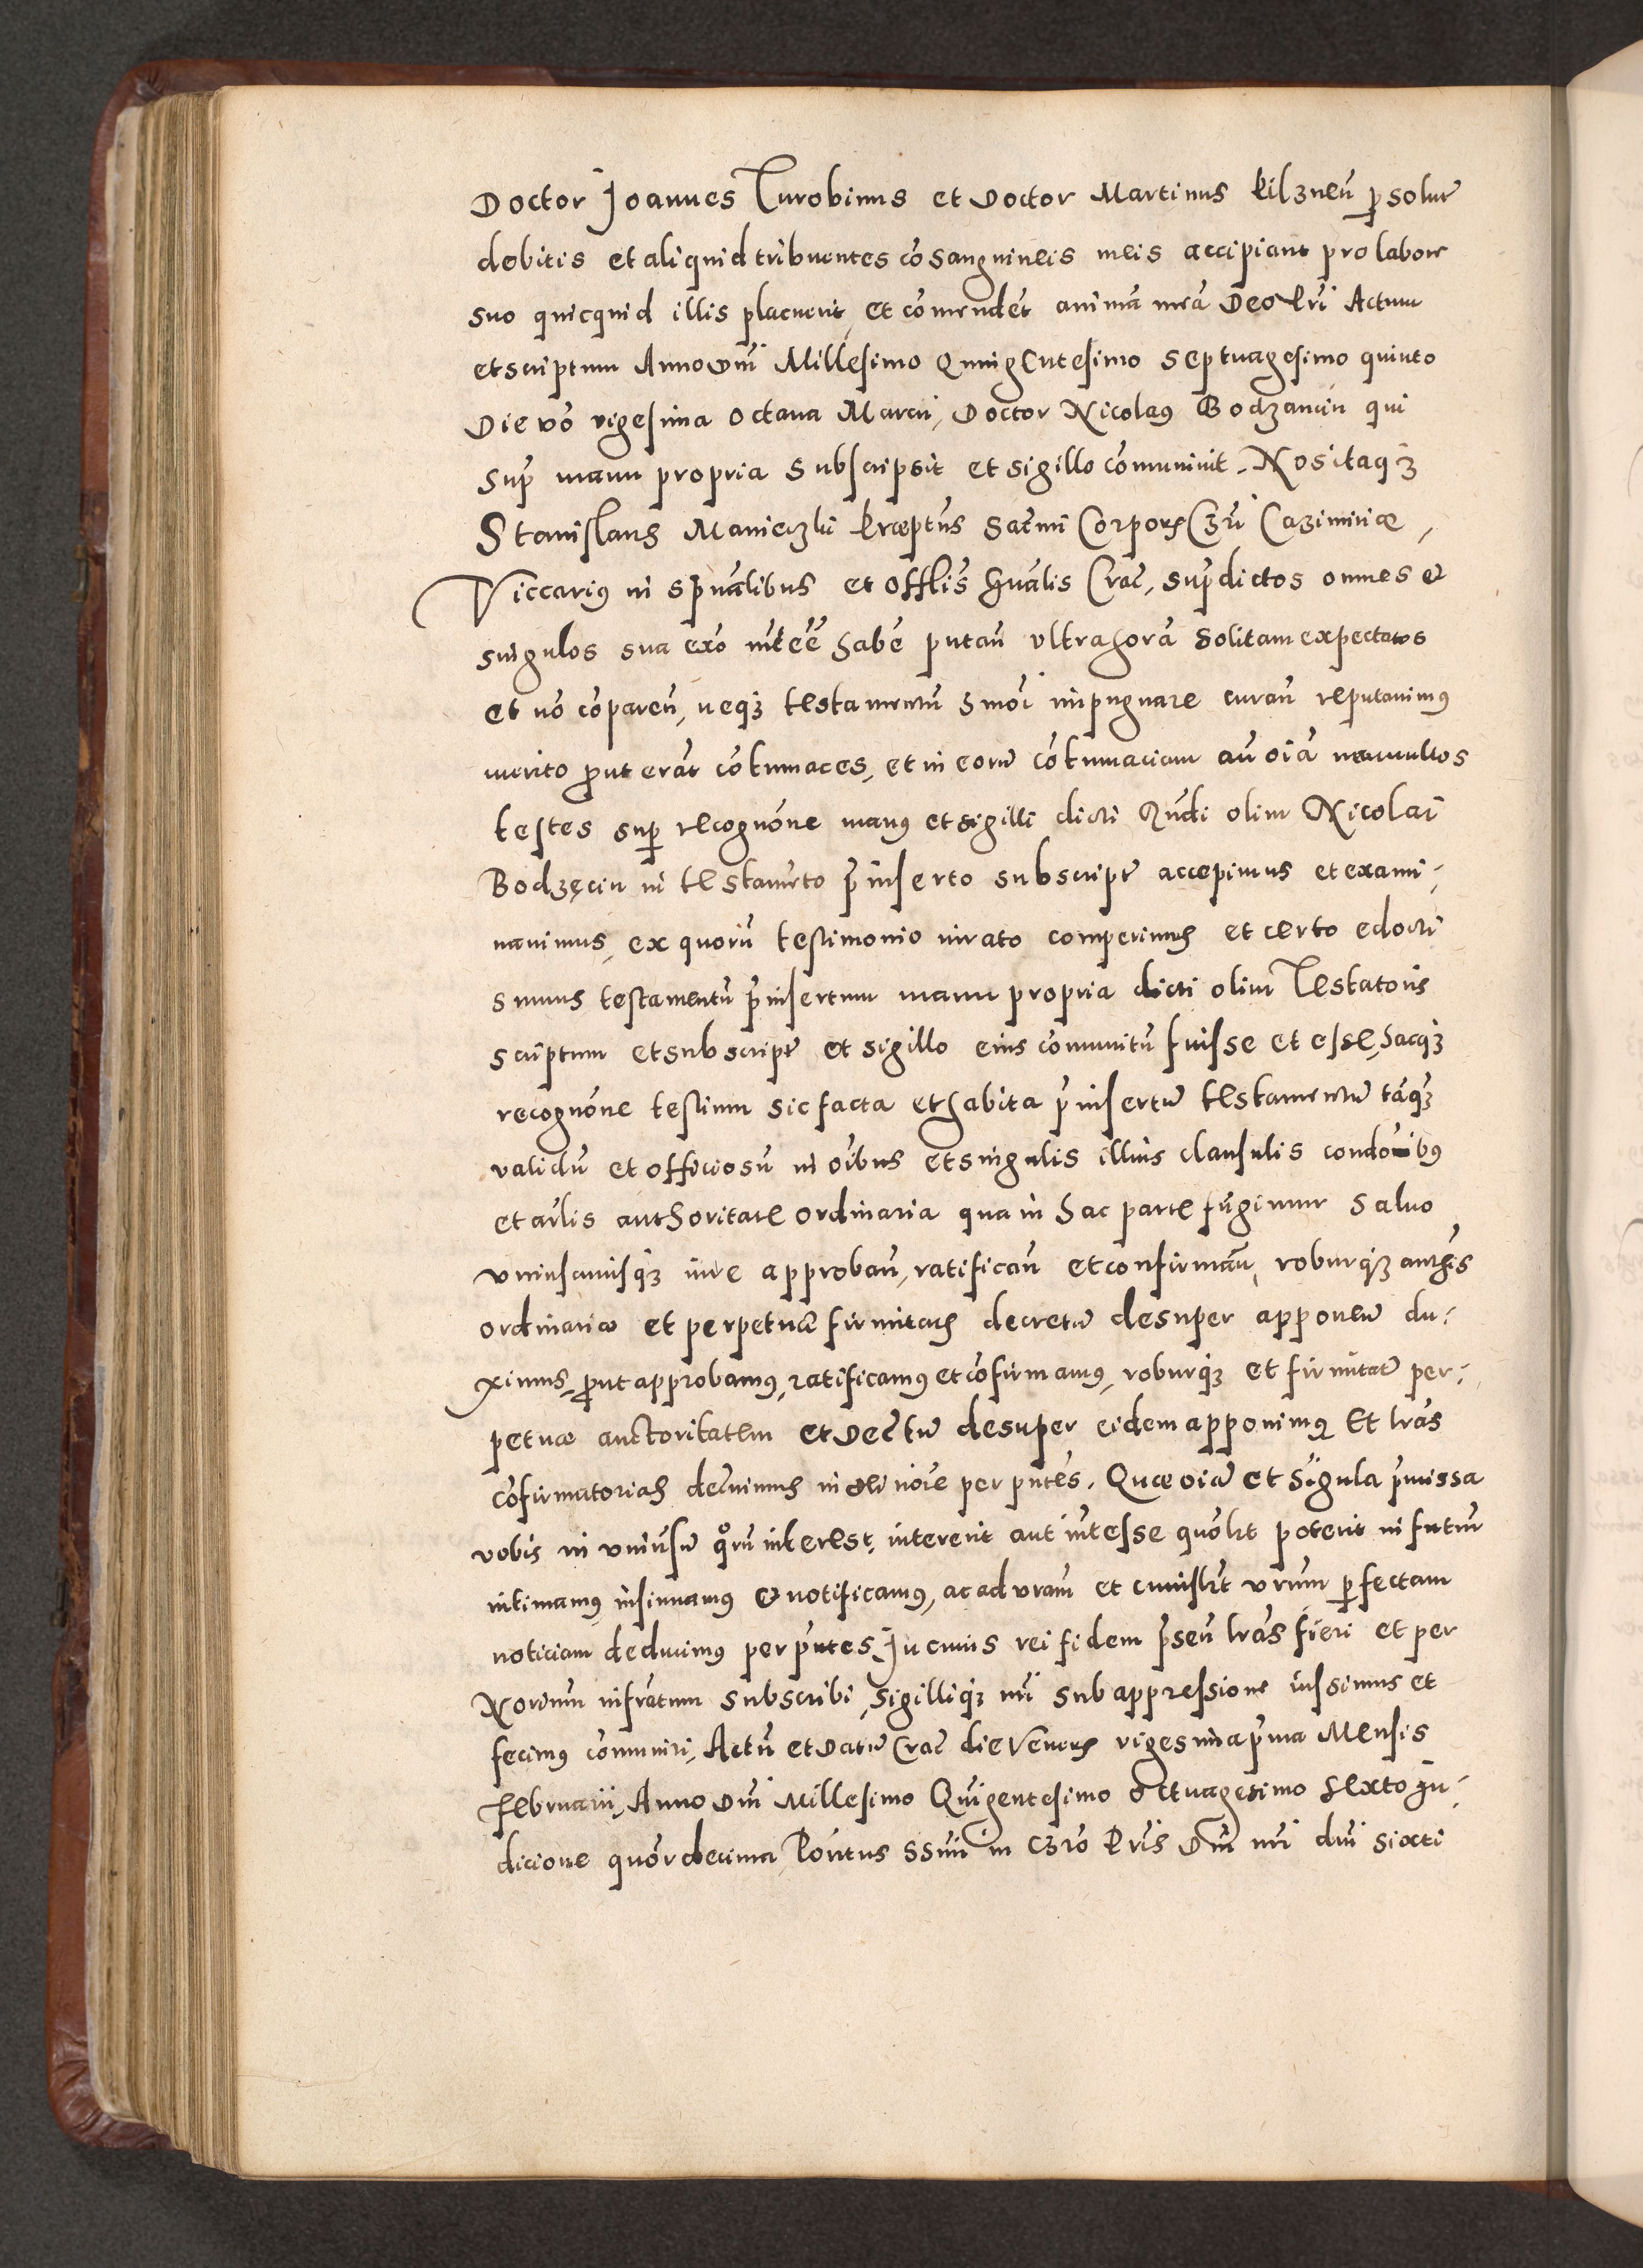 Doctor Joannes Turobinus et Doctor Martinus Pilzneñ ꝑ solut̃
debitis et aliquid tribuentes cõsanguineis meis accipiant pro labore
suo quicquid illis placuerit, et cõmendẽt animã meã Deo Pr̃i Actum
et scriptum Anno Dñi Millesimo Quingentesimo Septuagesimo quinto
Die võ vigesima octaua Marcii, Doctor Nicolaꝰ Bodzancin qui
Sup̃ manu propria Subscripsit et sigillo cõmuniuit. Nos itaqꝫ
Stanislaus Manieczki Præptũs Sac̃mi Corporis Chr̃i Cazimiriæ,
Viccariꝰ in sp̃ualibus et Offl̃is gñalis Crac̃, sup̃dictos omnes et
singulos sua exõ int̃eẽ habẽ putañ vltra horã solitam expectatos
et nõ cõpareñ, neqꝫ testamentũ hmõi impugnare curañ reputauimꝰ
merito ꝓut erãt cõtumaces, et in eorũ cõtumaciam añ oĩa nonnullos
testes suꝑ recognõne manꝰ et sigilli dicti Rñdi olim Nicolai
Bodzęcin in testamẽto p̃inserto subscript̃ accepimus et exami-
nauimus, ex quorũ testimonio iurato comperimus et certo edocti
sumus testamentũ p̃insertum manu propria dicti olim Testatoris
scriptum et subscript̃ et sigillo eius cõmunitũ fuisse et esse, hacqꝫ
recognõne testium sic facta et habita p̃insertũ testamentũ tãqꝫ
validũ et officiosũ in oĩbus et singulis illius clausulis condõnibꝰ
et ar̃lis authoritate ordinaria qua in hac parte fũgimur saluo
vniuscuiusqꝫ iure approbañ, ratificañ et confirmañ, roburqꝫ auth̃is
ordinariæ et perpetuæ firmitatis decretũ desuper apponeñ du-
ximus, ꝓut approbamꝰ, ratificamꝰ et cõfirmamꝰ, roburqꝫ et firmitatẽ per-
petuæ auctoritatem et Dec̃tũ desuper eidem apponimꝰ Et lr̃as
cõfirmatorias dec̃nimus in Dei nõie per pñtes. Quæ oĩa et sĩgula p̃missa
vobis in vniũsũ q̊rũ interest, intererit aut int̃esse quõlt poterit in futur̃
intimamꝰ, insinuamꝰ & notificamꝰ, ac ad vr̃am et cuiuslt vr̃um ꝑfectam
noticiam deducimꝰ per p̃ntes. In cuius rei fidem p̃señ lr̃as fieri et per
Norium infrãtum subscribi, sigilliqꝫ nr̃i subappressione iussimus et
fecimꝰ cõmuniri, Actũ et Datũ Crac̃ die Veneris vigesima p̃ma Mensis
Februarii, Anno Dñi Millesimo Quĩgentesimo Octuagesimo sexto In-
dicione quõrdecima, Pontus SSmi in Chr̃o Pr̃is Dñi nr̃i dni Sixti